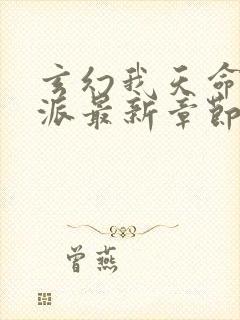 玄幻我天命
派最新章節
曾燕